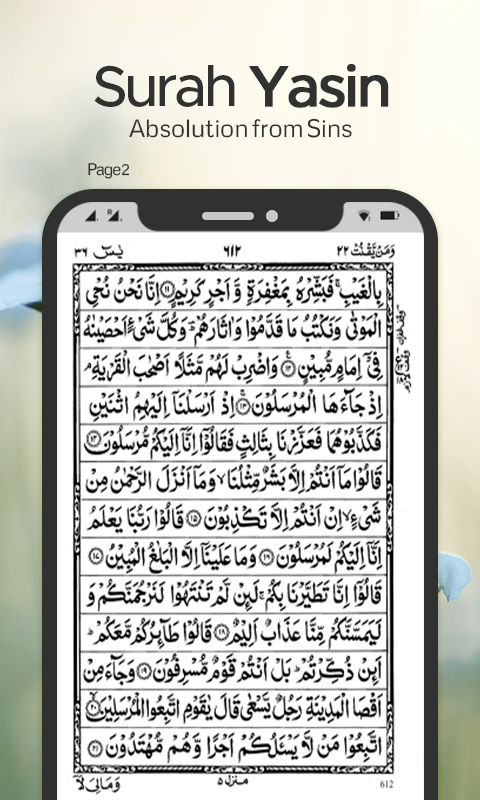 Surah Yasin
Absolution from Sins
Page2
وَمَنْ يَّقْنُتْ ٢٢ ٦١٢ يٰسٓ ٣٦
بِالْغَيْبِ ۚ فَبَشِّرْهُ بِمَغْفِرَةٍ وَّ اَجْرٍ كَرِيْمٍ ﴿۱۱﴾ اِنَّا نَحْنُ نُحْيِ
الْمَوْتٰى وَنَكْتُبُ مَا قَدَّمُوْا وَاٰثَارَهُمْ ۚ وَكُلَّ شَيْءٍ اَحْصَيْنٰهُ
فِيْٓ اِمَامٍ مُّبِيْنٍ ﴿۱۲﴾ وَاضْرِبْ لَهُمْ مَّثَلًا اَصْحٰبَ الْقَرْيَةِ ۘ
اِذْ جَآءَهَا الْمُرْسَلُوْنَ ﴿۱۳﴾ اِذْ اَرْسَلْنَآ اِلَيْهِمُ اثْنَيْنِ
فَكَذَّبُوْهُمَا فَعَزَّزْنَا بِثَالِثٍ فَقَالُوْٓا اِنَّآ اِلَيْكُمْ مُّرْسَلُوْنَ ﴿۱۴﴾
قَالُوْا مَآ اَنْتُمْ اِلَّا بَشَرٌ مِّثْلُنَا ۙ وَمَآ اَنْزَلَ الرَّحْمٰنُ مِنْ
شَيْءٍ ۙ اِنْ اَنْتُمْ اِلَّا تَكْذِبُوْنَ ﴿۱۵﴾ قَالُوْا رَبُّنَا يَعْلَمُ
اِنَّآ اِلَيْكُمْ لَمُرْسَلُوْنَ ﴿۱۶﴾ وَمَا عَلَيْنَآ اِلَّا الْبَلٰغُ الْمُبِيْنُ ﴿۱۷﴾
قَالُوْٓا اِنَّا تَطَيَّرْنَا بِكُمْ ۚ لَىِٕنْ لَّمْ تَنْتَهُوْا لَنَرْجُمَنَّكُمْ وَ
لَيَمَسَّنَّكُمْ مِّنَّا عَذَابٌ اَلِيْمٌ ﴿۱۸﴾ قَالُوْا طَآىِٕرُكُمْ مَّعَكُمْ ؕ
اَىِٕنْ ذُكِّرْتُمْ ؕ بَلْ اَنْتُمْ قَوْمٌ مُّسْرِفُوْنَ ﴿۱۹﴾ وَجَآءَ مِنْ
اَقْصَا الْمَدِيْنَةِ رَجُلٌ يَّسْعٰى قَالَ يٰقَوْمِ اتَّبِعُوا الْمُرْسَلِيْنَ ﴿۲۰﴾
اتَّبِعُوْا مَنْ لَّا يَسْـَٔلُكُمْ اَجْرًا وَّهُمْ مُّهْتَدُوْنَ ﴿۲۱﴾
وَمَالِيَ لَآ منزل ٥ 612